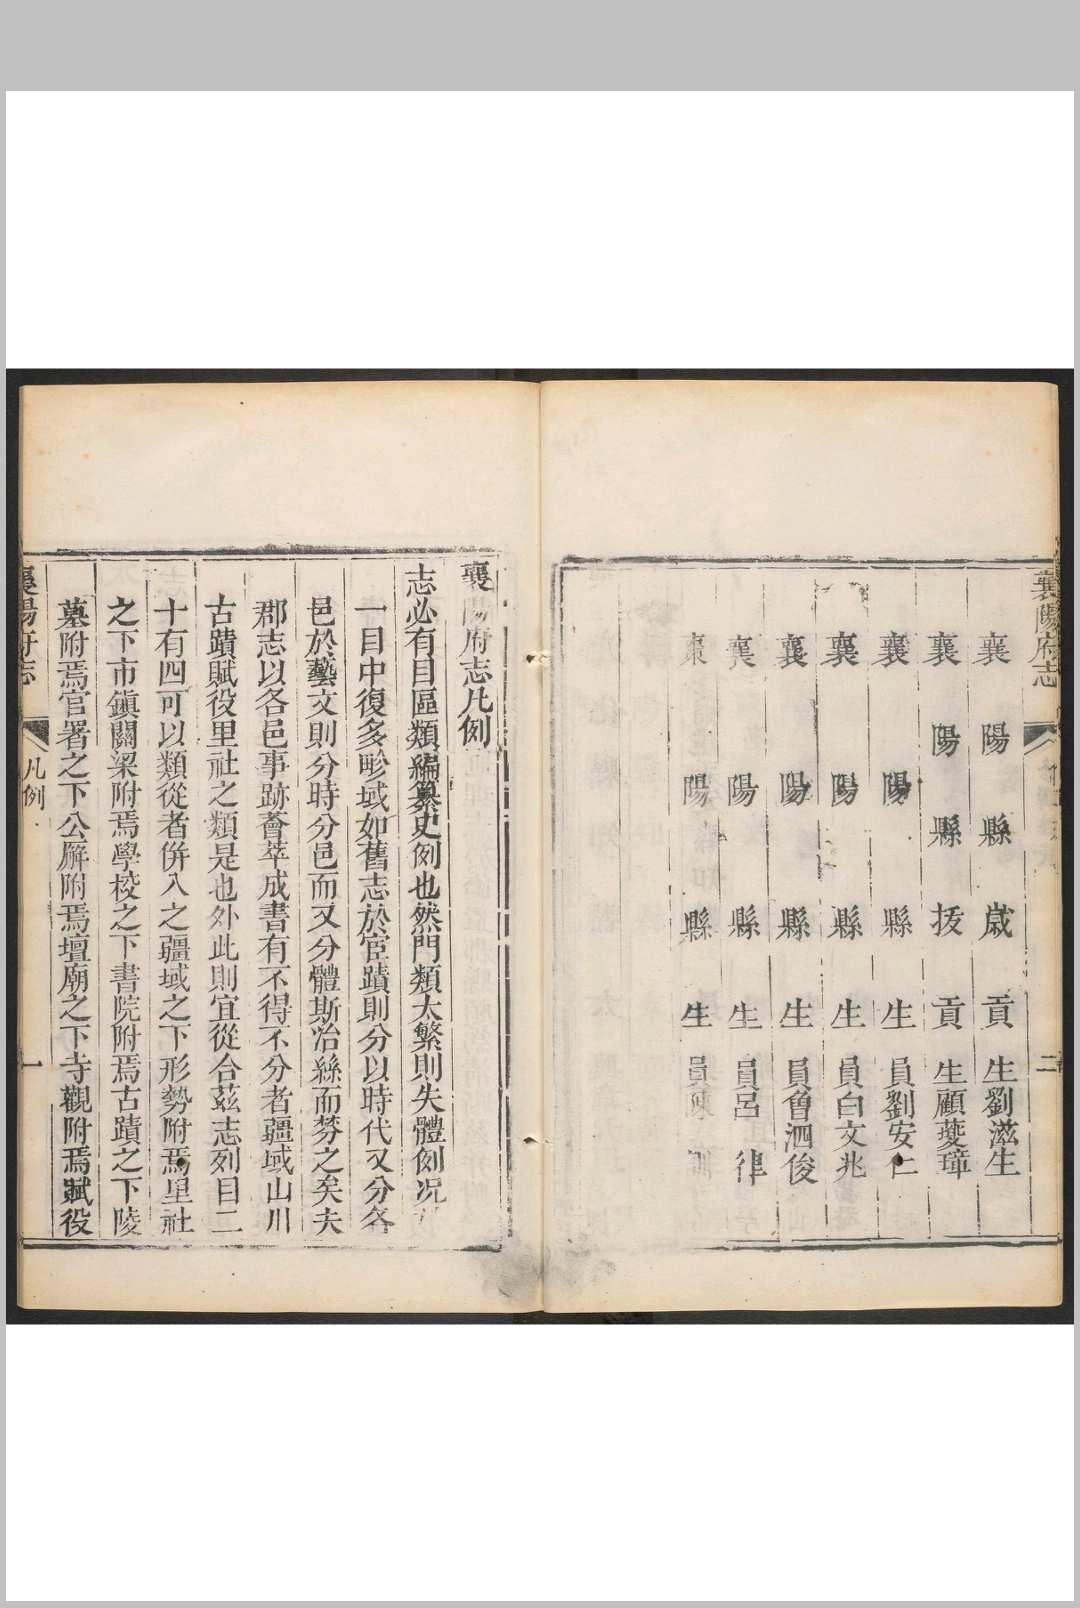 襄陽府志
二
襄陽縣歲貢生劉滋生
襄陽縣拔貢生顧夔璋
襄陽縣生員劉安仁
襄陽縣生員白文兆
襄陽縣生員曾泗俊
襄陽縣生員呂律
陽縣生員陳
襄陽府志凡例
志必有目區類編纂史例也然門類太繁則失體例况
一目中復多畛域如舊志於宦蹟則分以時代又分各
邑於藝文則分時分邑而又分體斯冶絲而棼之矣夫
郡志以各邑事跡薈萃成書有不得不分者疆域山川
古蹟賦役里社之類是也外此則宜從合茲志列目二
十有四可以類從者併入之疆域之下形勢附焉里社
之下市鎮關梁附焉學校之下書院附焉古蹟之下陵
墓附焉官署之下公廨附焉壇廟之下寺觀附焉賦役
襄陽府志
凡例
一